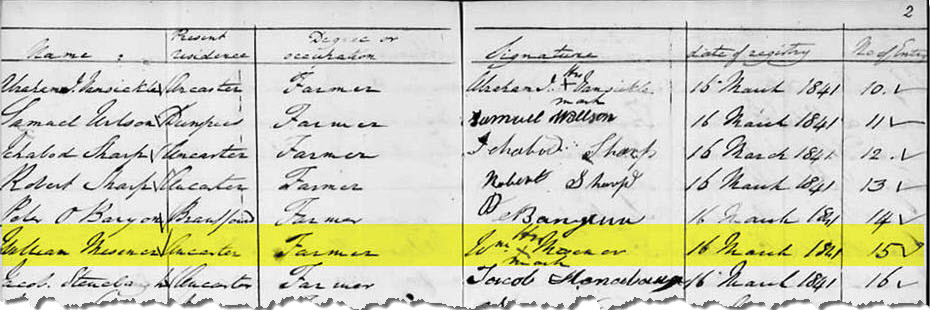 2
Name Present residence Degree or occupation Signature date of registry No of Entry
Abraham J. Vansickle Ancaster Farmer Abraham J. His X mark Vansickle 16 March 1841 10
Samuel Wilson Dumfries Farmer Samuel Willson 16 March 1841 11
Ichabod Sharp Ancaster Farmer Ichabod Sharp 16 March 1841 12
Robert Sharp Ancaster Farmer Robert Sharp 16 March 1841 13
Peter O Banyon Brantford Farmer P O Banyoun 16 March 1841 14
William Misener Ancaster Farmer Wm His X mark Misener 16 March 1841 15
Jacob Ancaster Farmer Jacob 16 March 1841 16